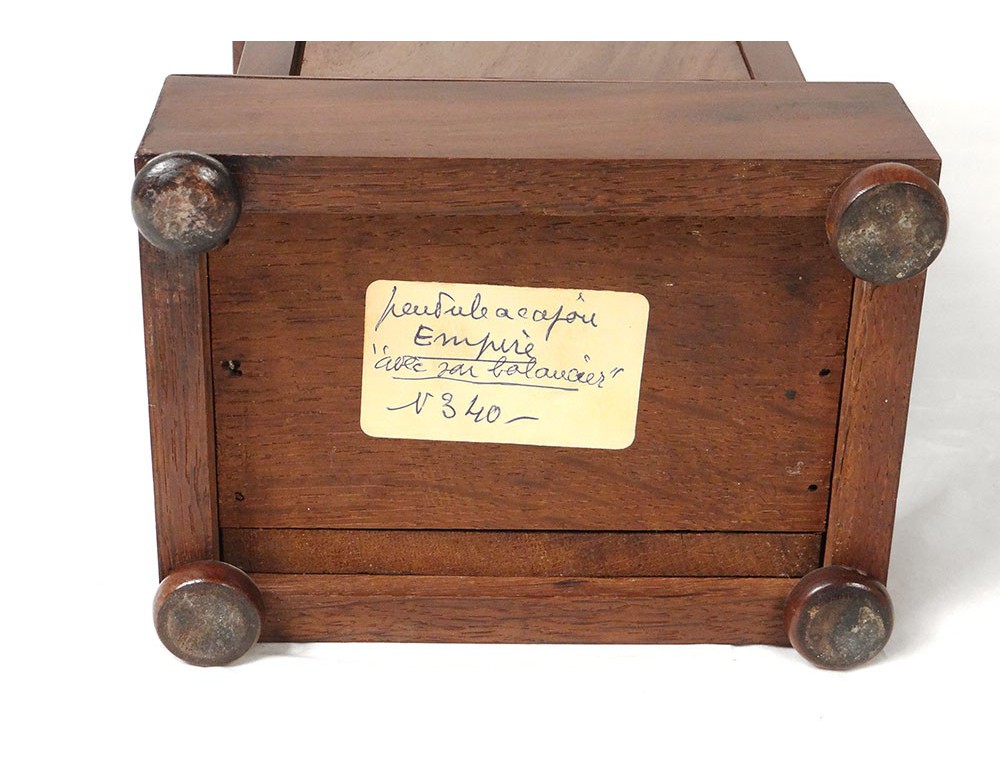 pendule acajou
Empire
"avec son balancier"
N 340 -